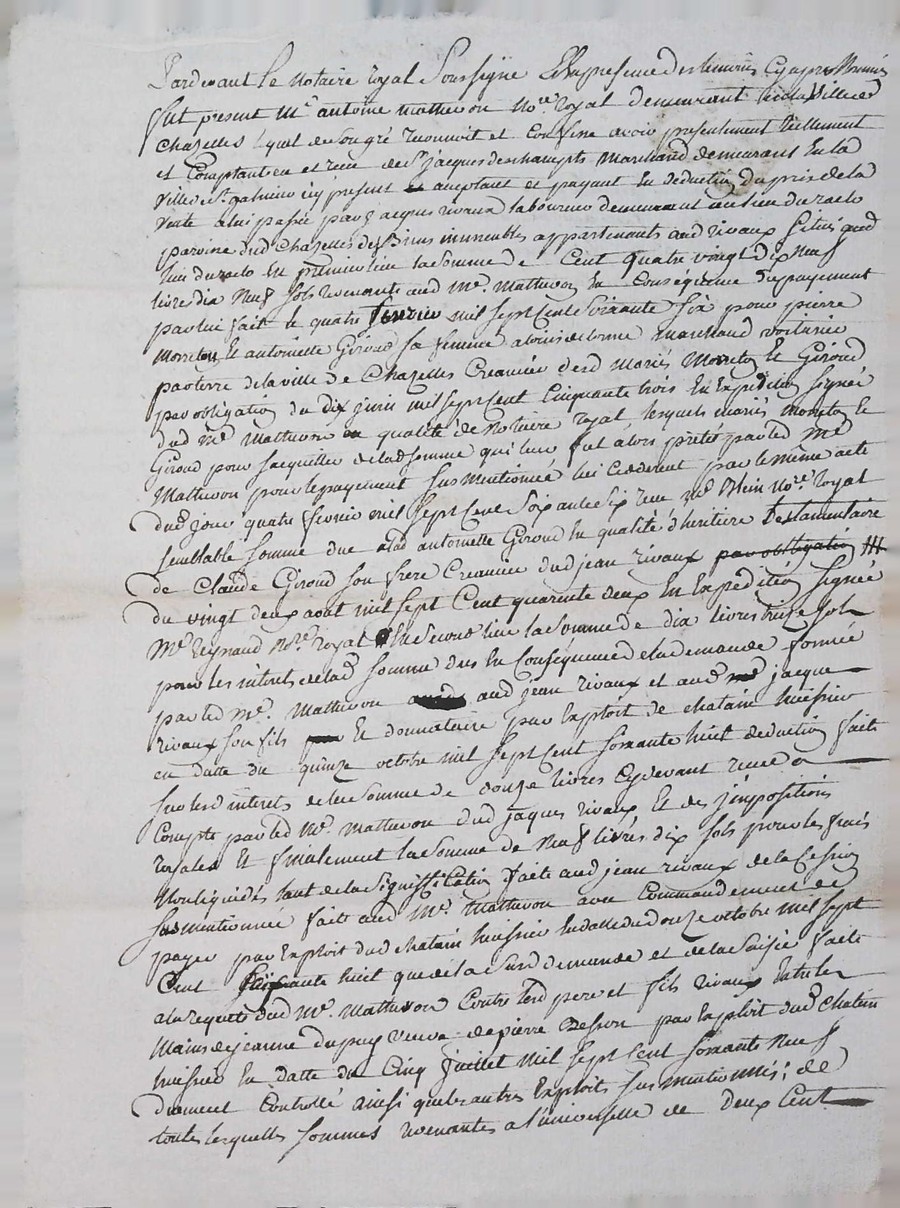 Pardevant Le Notaire royal Soussigné Et En presence des temoins Cy apres Nommés
fut present Me antoine mathevon Nore Royal demeurant en la Ville de
Chazelles Lequel de son gré reconnoit et Confesse avoir presentement reellement
et Comptant eu et recu de Sr jacques deschampts Marchand demeurant En la
Ville de St. galmier icy present acceptant et payant En deduction du prix de la
Vente a lui passée par jacques rivaux laboureur demeurant au lieu du
paroisse dud Chazelles des Biens immeubles appartenants aud rivaux situés aud
lieu En premier lieu la somme de Cent quatre vingt dix Neuf
livre dix Neuf sols revenante aud Me. Mathevon En Consequence du payement
par lui fait le quatre fevrier mil sept Cent Soixante Six pour pierre
Morreton Et antoinette Giroud sa femme a marchand voiturier
par terre de la ville de Chazelles Creancier desd mariés Morreton Et Giroud
par obligation du dix juin mil sept Cent Cinquante trois En Expedition signée
dud Me Mathevon en qualité de Notaire royal, lesquels mariés Morreton Et
Giroud pour sacquitter de lad somme qui leur fut alors prêtée par led Me
Mathevon pour le payement Sus Mentionné lui Cederent par le même acte
dud jour quatre fevrier mil sept Cent Soixante Six recu Me Nore Royal
semblable somme due a lad antoinette Giroud En qualité d'heritiere testamentaire
de Claude Giroud son frere Creancier dud jean rivaux par obligation
du vingt deux aout mil sept Cent quarente deux En Expedition signée
Me Reynaud Nore. Royal En Second lieu la Somme de dix livres treize sols
pour les interets de lad somme dus En Consequence de la demande formée
par led Me. Mathevon aud jean rivaux et aud jacque
rivaux son fils Et donnataire par Exploit de chatain huissier
en datte du quinze octobre mil sept Cent soixante huit deduction faite
sur lesd interets de la somme de douze livres cy devant recue a
Compte par led Me. Mathevon dud jaques rivaux Et des jmpositions
royales Et finalement la somme de Neuf livres dix sols pour les frais
Non liquidés tant de la Signiffication faite aud jean rivaux de la Cession
sus mentionnée faite aud Me. Mathevon avec Commandement de
payer par Exploit dud chatain huissier En datte dud onze octobre mil sept
Cent Soixante huit que de la Susd demande et de la Saisie faite
a la requette dud Me. Mathevon Contre lesd pere et fils rivaux Entre les
Mains de jeanne dupuy veuve de pierre Besson par Exploit dud Chatain
huissier En datte du Cinq juillet mil sept Cent soixante Neuf
duement Controllé ainsi que les autres Exploits sus mentionnés; de
toutes lesquelles sommes revenantes a l'universelle de deux Cent